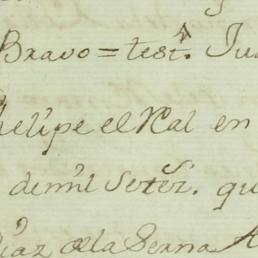 Bravo = test.º Ju
helipe el Real en
de mil Setez. qu
Diaz de la Serna A